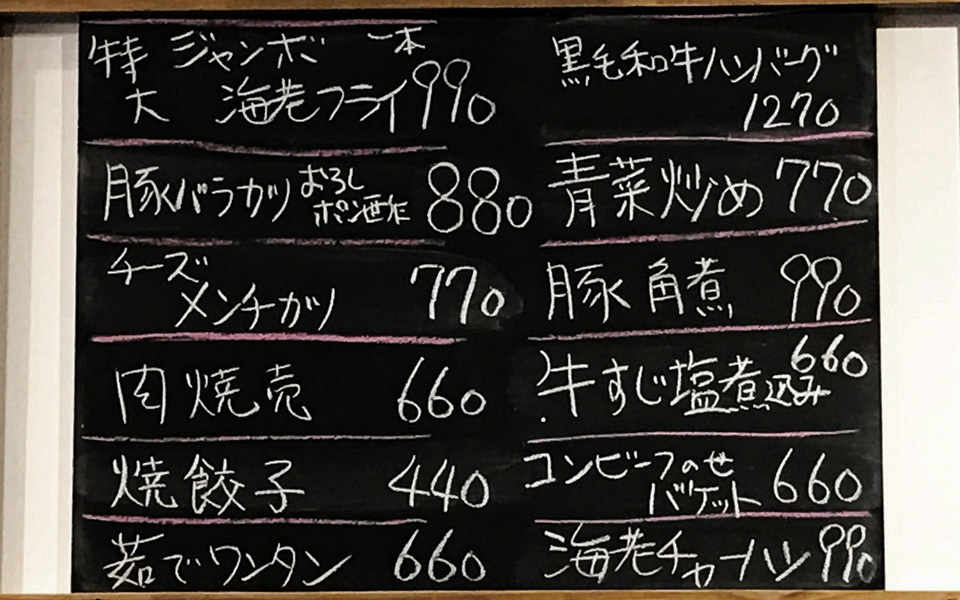 特大 ジャンボ 一本
海老フライ 990
豚バラカツ おろし
ポン酢 880
チーズ
メンチカツ 770
肉焼売 660
焼餃子 440
茹でワンタン 660
黒毛和牛ハンバーグ
1270
青菜炒め 770
豚角煮 990
牛すじ塩煮込み 660
コンビーフのせ
バゲット 660
海老チャーハン 990